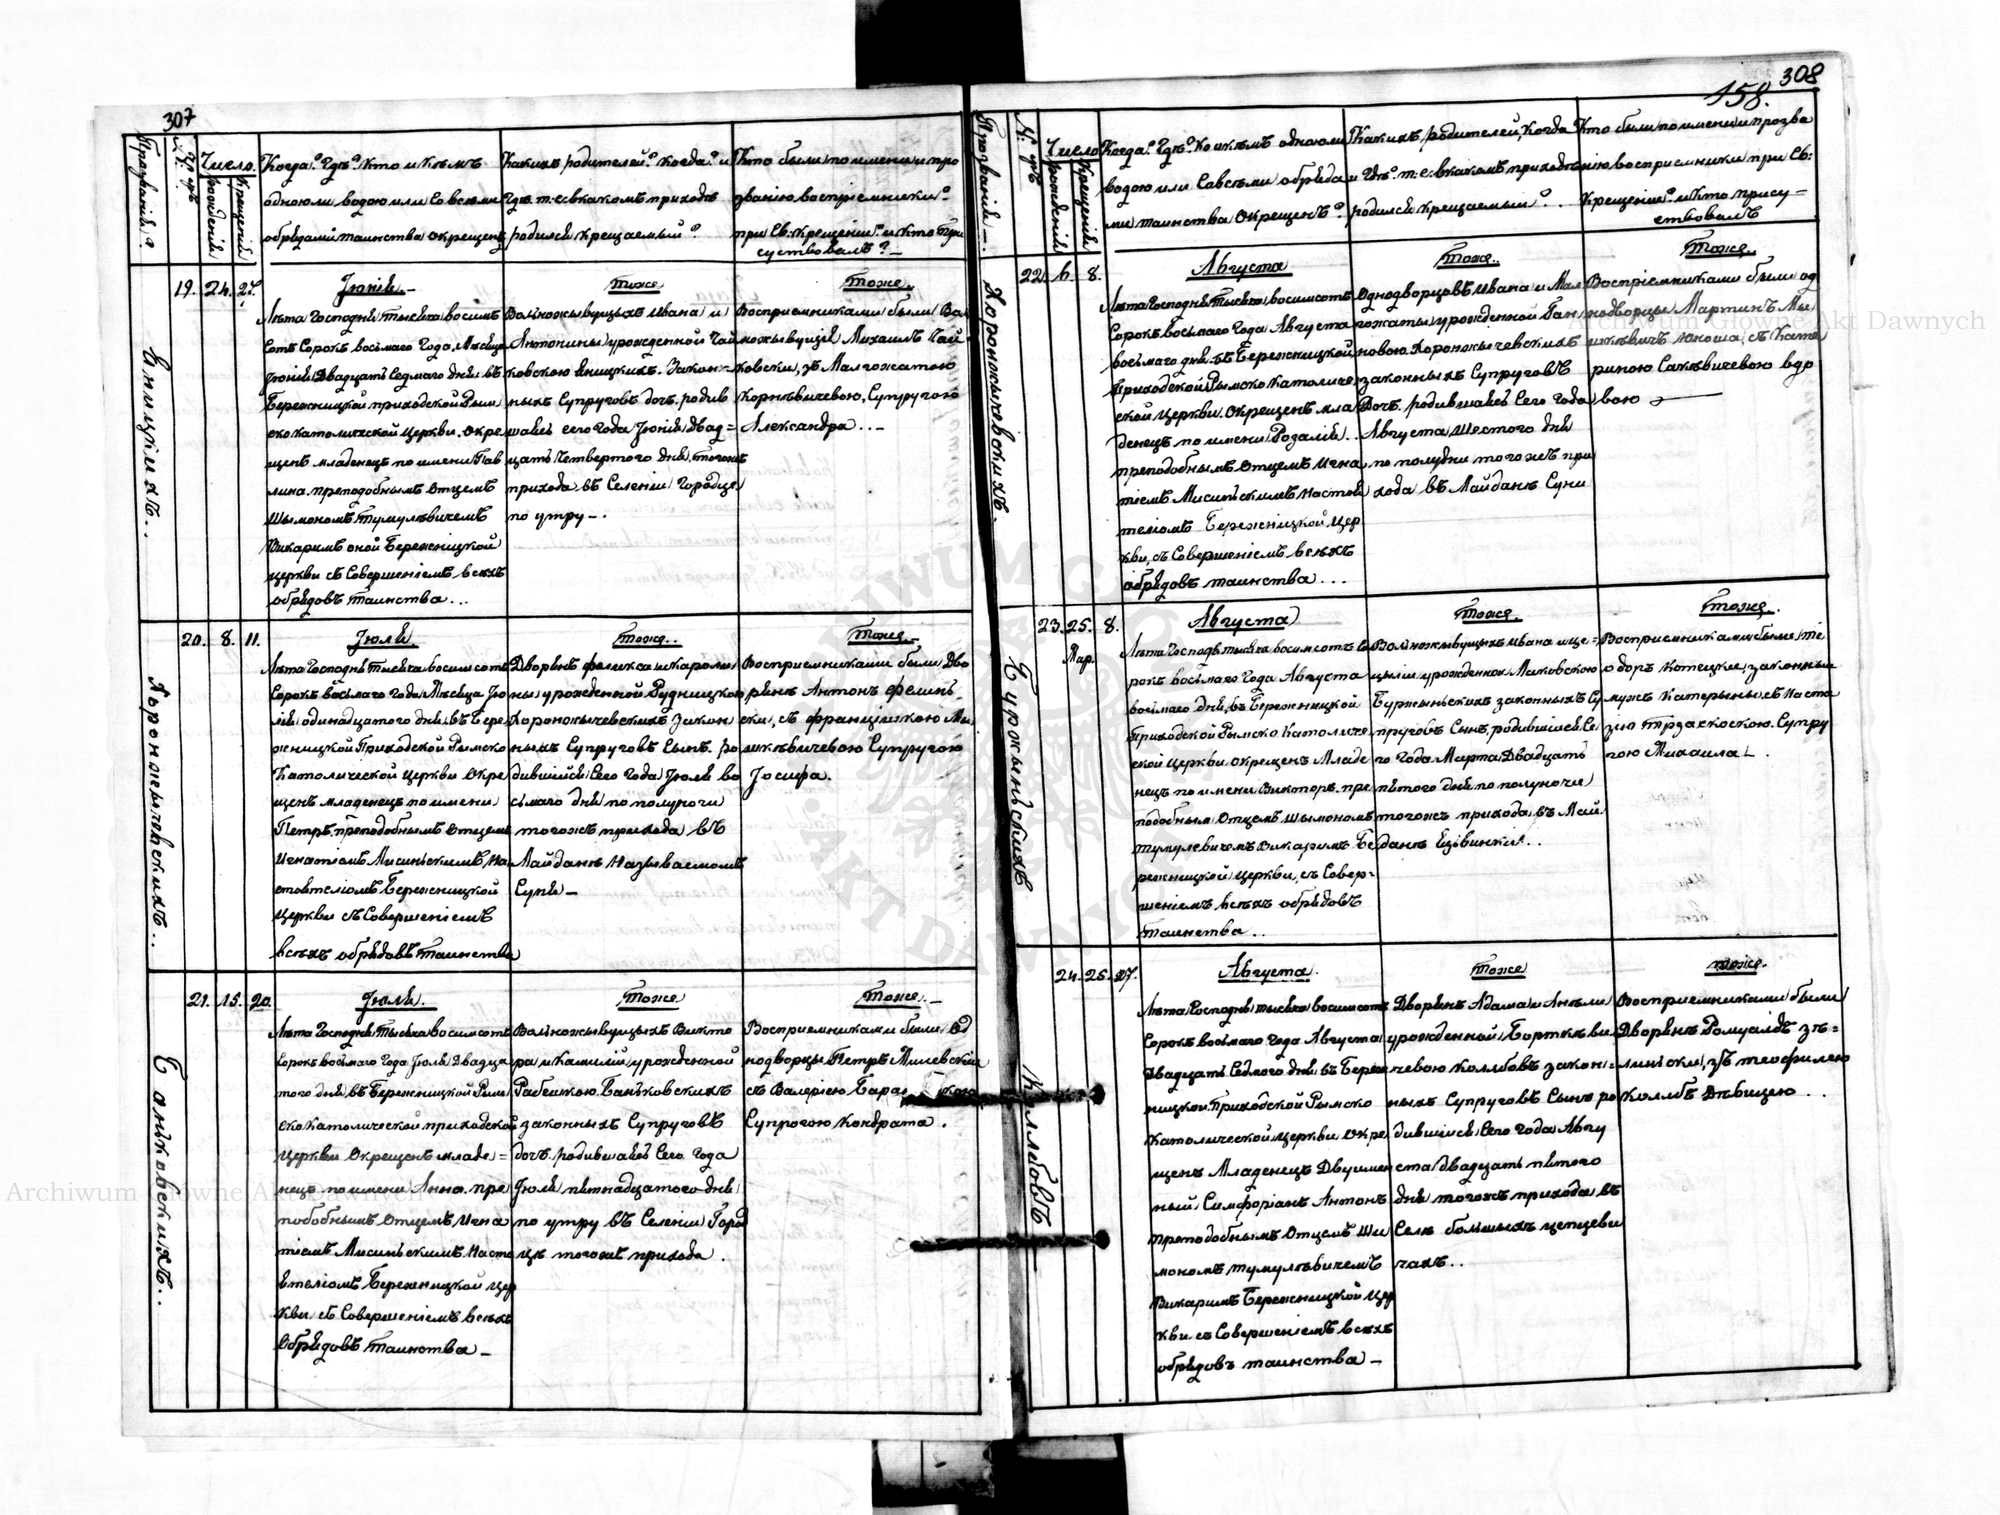 307
Прозваніе?
№ ур
Число.
рожденія
Крещенія
Когда? Гдѣ? Кто и Кѣмъ
одною ли водою или Со всѣми
обрядами таинства окрещенъ
Какихъ родителей? когда? и
Гдѣ. т: е: в какомъ приходѣ
родился Крещаемый?
Кто были по имени и про
званію воспріемники?
при Св: Крещеніи? и Кто при
сутствовалъ? —
19. 24. 27.
Яницкихъ.
Іюнія —
Лѣта Господня Тысяча восимъ
Сотъ Сорокъ восьмаго Года, Мѣсяца
Іюнія Двадцать Седмаго дня въ
Бережницкой приходской Рим
ско Католической Церкви. окре
щенъ младенецъ по имени Пав
лина. преподобнымъ отцемъ
Шымономъ Тумулѣвичемъ
Викаримъ оной Бережницкой
церкви съ Совершеніемъ всѣхъ
обрядовъ Таинства...
Тоже
Вольножывущыхъ Ивана и
Антонины урожденной Чай
ковскою Яницкихъ. Закон=
ныхъ Супруговъ дочь. родив
шаясь сего года Іюнія двад=
цать Четвертого дня, тогожъ
прихода въ Селеніи Городце
по утру —.
Тоже.
Восприемниками были Во
ножывущій Михаилъ Чай
ковски, зъ Малгожатою
Корнѣвичевою, Супругою
Александра...
20. 8. 11.
Хоронжычевскихъ..
Іюля.
Лѣта Господня Тысяча восимсотъ
Сорокъ восьмаго года Мѣсяца Ію
ля одинадцатого дня, въ Бере
жницкой Приходской Рымско
Католической Церкви Окре
щенъ младенецъ по имени
Петръ. преподобнымъ Отцемъ
Игнатіемъ Мисинскимъ На
стоятеліомъ Бережницкой
Церкви съ Совершеніемъ
всѣхъ обрядовъ Таинства
Тоже..
Дворянъ Феликса и Кароли
ны урожденной Рудницкою
Хоронжычевскихъ Закон
ныхъ Супруговъ Сынъ. ро
дившійся Сего года Іюля во
сьмаго дня по полуночи
тогожъ прихода въ
Майданѣ Называемомъ
Суня —
Тоже —
Восприемниками были Дво
рянъ Антонъ Фелинь
ски, съ Францішкою Ми
шкѣвичевою Супругою
Іосифа.
21. 15. 20.
Баньковскихъ..
Іюля.
Лѣта Господня Тысяча восимсотъ
Сорокъ восьмаго года Іюля Двадца
того дня, въ Бережницкой Рим
ско Католической приходской
церкви Окрещенъ младе=
нецъ по имени Анна. пре
подобнымъ Отцемъ Игна
тіемъ Мисинскимъ Насто
ятеліомъ Бережницкой Цер
кви, съ Совершеніемъ всѣхъ
Обрядовъ Таинства —
Тоже
Вольножывущыхъ Викто
ра и Камилій урожденной
Рабешкою Баньковскихъ
законныхъ Супруговъ
дочь. родившаясь Сего года
Іюля пятнадцатого дня
по утру въ Селеніи Город
цѣ тогожъ прихода.
Тоже. —
Восприемниками были Од
нодворцы Петръ Милевскій
съ Валеріею
Супрогою Кондрата.
158.
308
Прозваніе —.
№ ур
Число
рожденія
Крещенія
Когда? Гдѣ? Ко и кѣмъ одною ли
водою или Совсѣми обряда
ми таинства Окрещенъ?
Какихъ родителей, Когда
и Гдѣ? т: е: в какомъ приходѣ
родился крещаемый?
Кто были по имени и прозва
нію восприемники при Св:
Крещеніи? и Кто прису—
тствовалъ
22. 6. 8.
Хоронжычевскихъ.
Августа
Лѣта Господня Тысяча восимсотъ
Сорокъ восьмаго Года Августа
восьмаго дня. въ Бережницкой
Приходской Рымско Католиче
ской церкви. Окрещенъ мла
денецъ по имени Розалія..
преподобнымъ Отцемъ Игна
тіемъ Мисинскимъ Настоя
теліомъ Бережницкой Цер
кви, съ Совершеніемъ всѣхъ
обрядовъ таинства...
Тоже.
Однодворцовъ Ивана и Мал
гожаты урожденной Ган
новою Хоронжычевскихъ
законныхъ Супруговъ
Дочь. родившаясь Сего года
Августа Шестого дня
по полудни тогожъ при
хода въ Майданѣ Суни
Тоже.
Восприемниками были од
нодворцы Мартинъ Ми
шкѣвичъ юноша, съ Кате
риною Сакѣвичевою вдо
вою —
23. 25. 8.
Мар.
Буржыньскихъ
Августа
Лѣта Господ. тысяча восимсотъ Со
рокъ восьмаго Года Августа
восьмаго дня, въ Бережницкой
Приходской Рымско Католиче
ской Церкви окрещенъ Младе
нецъ по имени Викторъ. пре
подобным Отцемъ Шымономъ
Тумулевичемъ Викаримъ Бе
режницкой Церкви, съ Совер=
шеніемъ всѣхъ обрядовъ
таинства..
Тоже.
Вольножывущыхъ Ивана и Це=
цыли урожденной Маковскою
Буржыньскихъ законныхъ Су
пруговъ Сынъ, родившійся Се
го года Марта Двадцать
пятого дня по полуночи
тогожъ прихода, въ Май
данѣ
Тоже.
Восприемниками были Те
одоръ Котецкіе, законный
мужъ Катерыны, съ Наста
зіею Трзаскоскою Супру
гою Михаила —.
24. 25. 27.
Коллѣбовъ
Августа.
Лѣта Господня, тысяча восимсотъ
Сорокъ восьмаго Года Августа
Двадцать Седмого дня. въ Береж
ницкой Приходской Рымско
Католической Церкви Окре
щенъ Младенецъ Двуимен
ный, Симфоріанъ Антонъ
преподобнымъ Отцемъ Шы
мономъ Тумулѣвичемъ
Викаримъ Бережницкой Цер
кви съ Совершеніемъ всѣхъ
обрядовъ таинства —
Тоже
Дворянъ Адама и Анѣли
урожденной Барткѣви
чевою Коллѣбовъ закон=
ныхъ Супруговъ Сынъ ро
дившійся Сего года Авгу
ста двадцать пятого
дня тогожъ прихода въ
Селѣ большихъ цепцеви
чахъ..
тоже.
Восприемниками были
Дворянъ Ромуалдъ зѣ=
линьски, зъ теофилею
Коллѣб Дѣвицею..
Archiwum Główne Akt Dawnych
Archiwum Główne Akt Dawnych
ARCHIWUM GŁÓWNE
AKT DAWNYCH